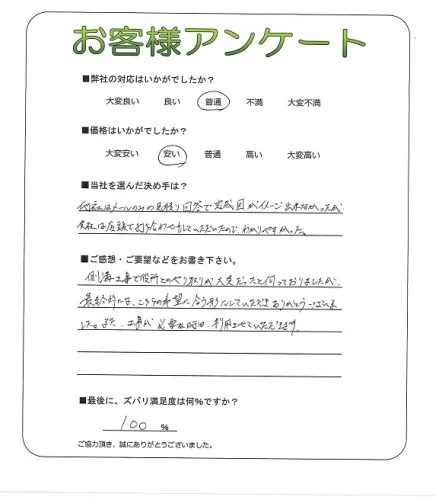 お客様アンケート
■弊社の対応はいかがでしたか?
大変良い 良い 普通 不満 大変不満
■価格はいかがでしたか?
大変安い 安い 普通 高い 大変高い
■当社を選んだ決め手は?
他社はメールのみの見積り回答で完成図がイメージ出来なかったが
貴社は店頭で打ち合わせもしていただいたので、わかりやすかった。
■ご感想・ご要望などをお書き下さい。
側溝工事で役所とのやり取りが大変だったと伺っておりましたが、
最終的には、こちらの希望に合う形にしていただきありがとうございま
した。また、工事が必要な時は、利用させていただきます。
■最後に、ズバリ満足度は何%ですか?
100 %
ご協力頂き、誠にありがとうございました。